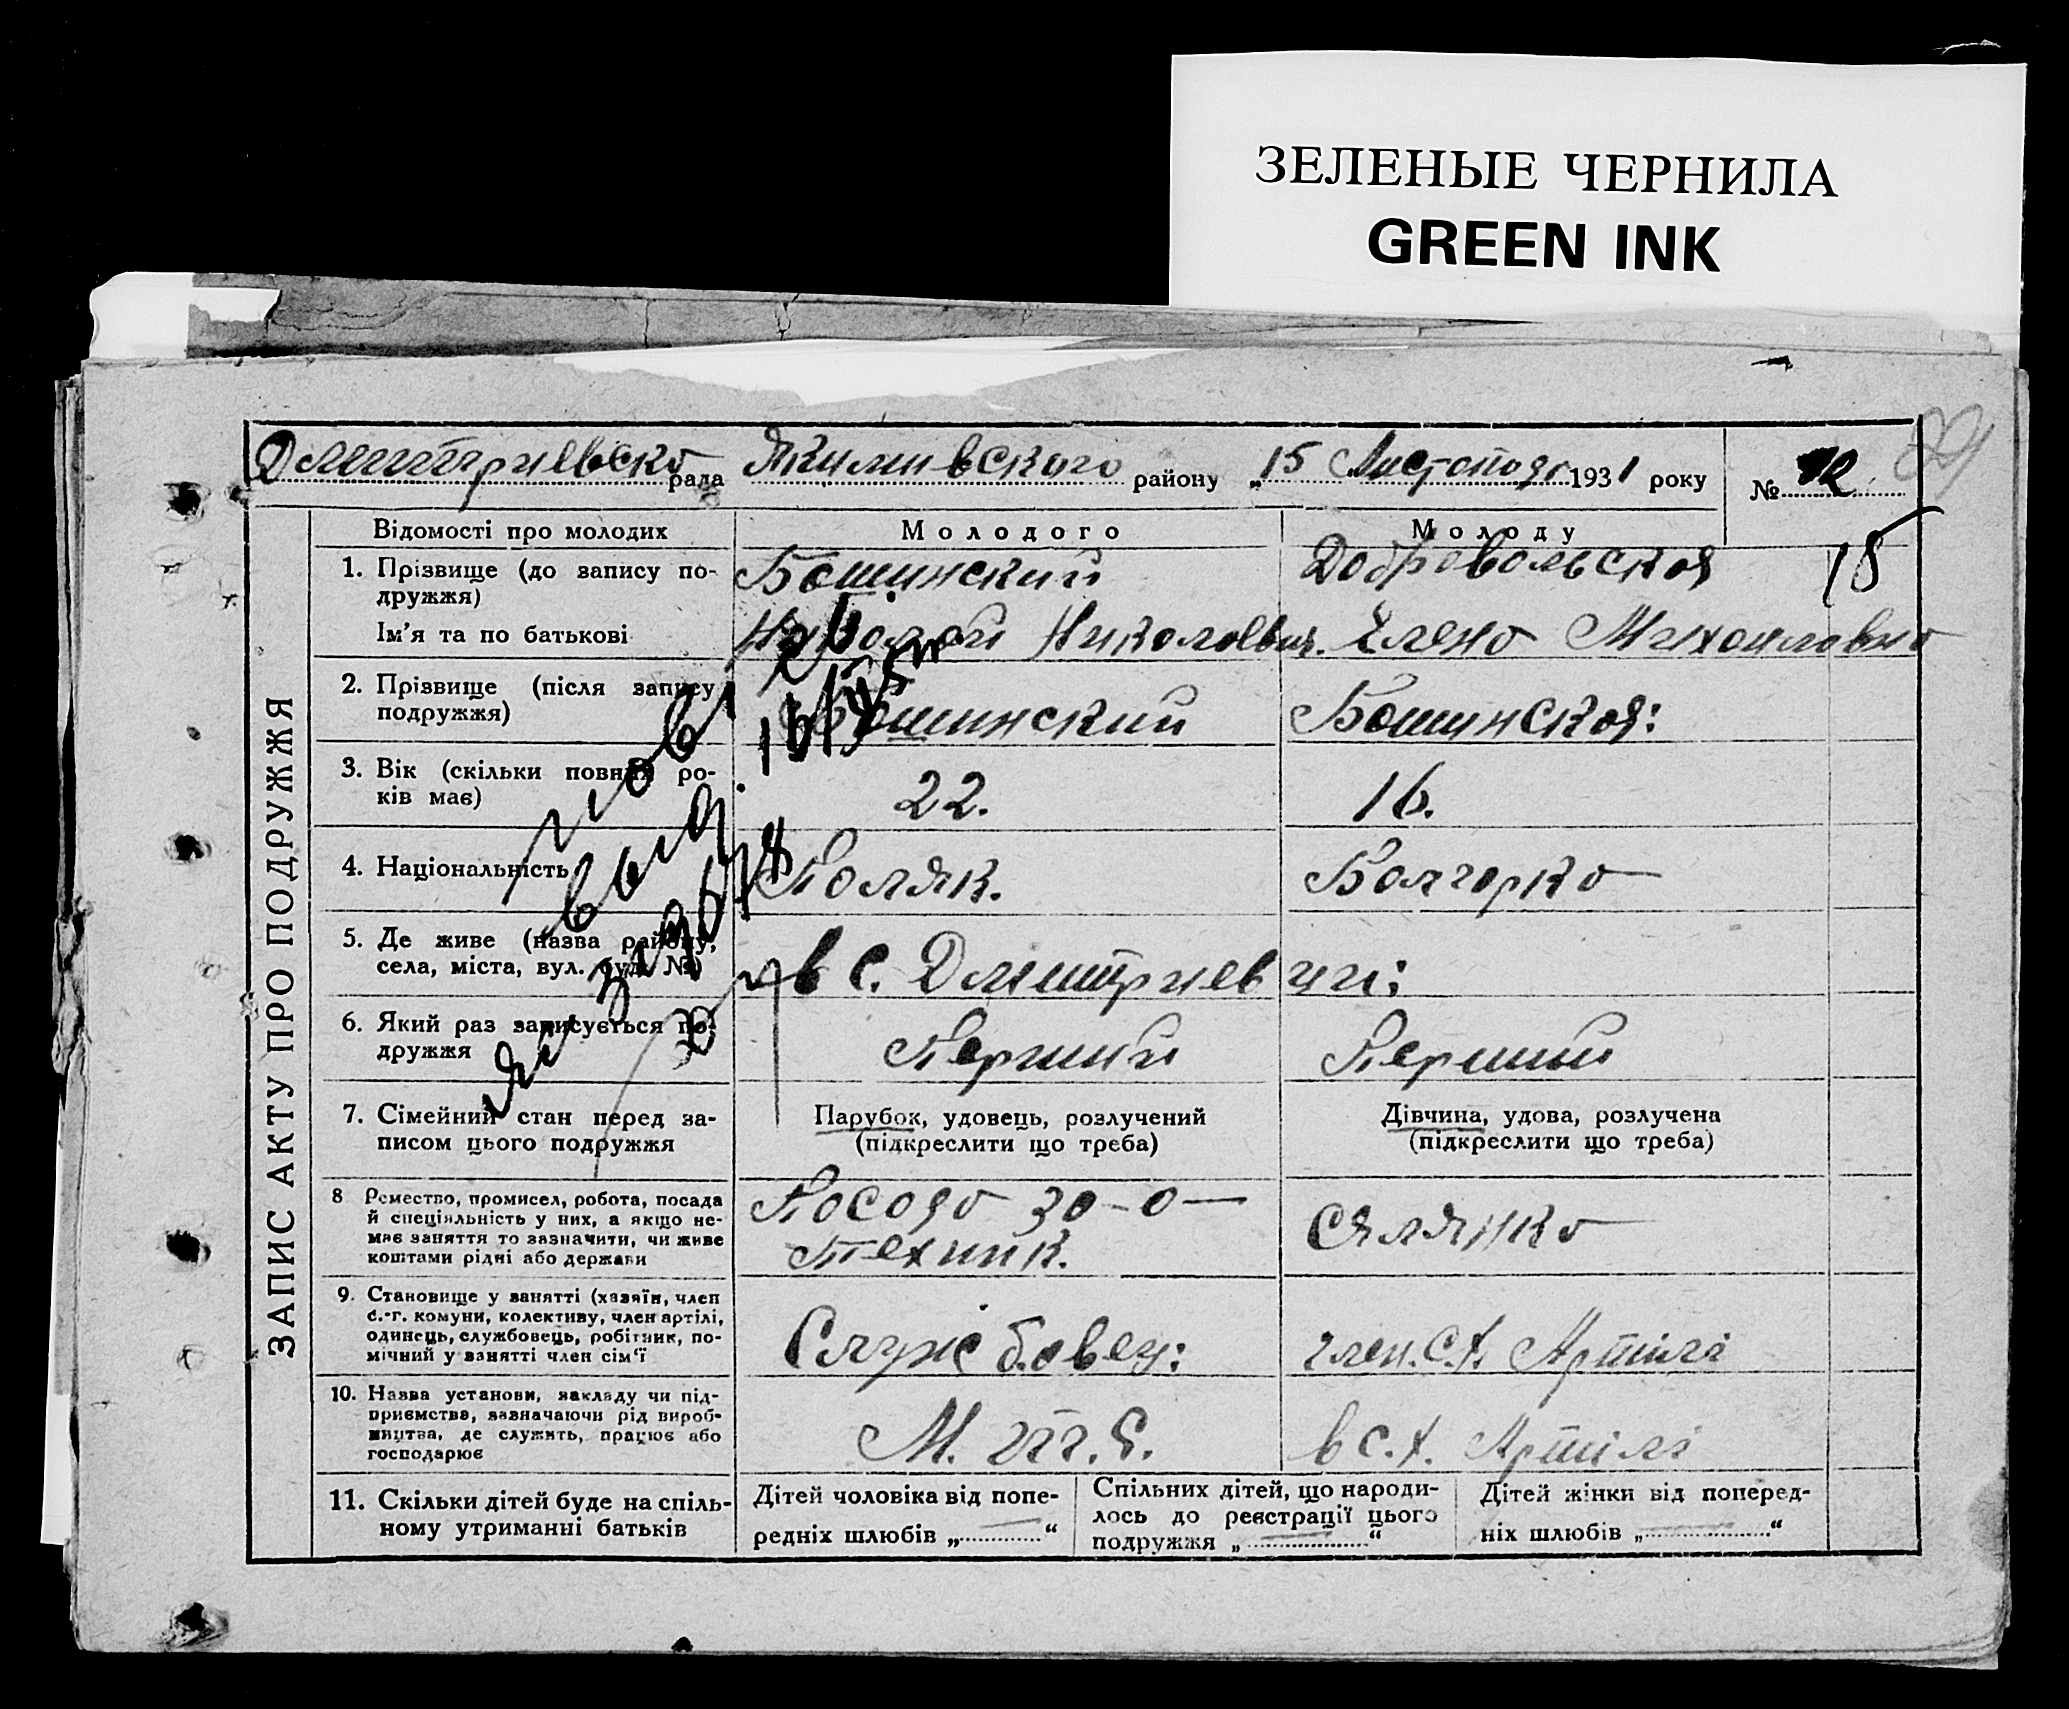 ЗЕЛЕНЫЕ ЧЕРНИЛА
GREEN INK
Дмитриевско рада Якимівского району „15 Листопада 1931 року № 12
ЗАПИС АКТУ ПРО ПОДРУЖЖЯ
Відомості про молодих Молодого Молоду
1. Прізвище (до запису по-
дружжя)
Бошинский Добровольская 15
Ім'я та по батькові Николай Николаевич. Елена Михайловна
2. Прізвище (після запису
подружжя)
Бошинский Бошинская:
3. Вік (скільки повних ро-
ків має)
22. 16.
4. Національність Поляк. Болгарка
5. Де живе (назва району,
села, міста, вул. буд. №)
в с. Дмитриевци:
6. Який раз записується по-
дружжя
Перший Перший
7. Сімейний стан перед за-
писом цього подружжя
Парубок, удовець, розлучений
(підкреслити що треба)
Дівчина, удова, розлучена
(підкреслити що треба)
8 Ремество, промисел, робота, посада
й спеціяльність у них, а якщо не-
має заняття то зазначити, чи живе
коштами рідні або держави
Посада зо-о-
техник.
Селянка
9. Становище у занятті (хазяїн, член
с.-г. комуни, колективу, член артілі,
одинець, службовець, робітник, по-
мічний у занятті член сім'ї
Службовец: член. С.Х. Артілі
10. Назва установи, закладу чи під-
приємства, зазначаючи рід вироб-
ництва, де служить, працює або
господарює
М. Т. С. в с.х. Артілі
11. Скільки дітей буде на спіль-
ному утриманні батьків
Дітей чоловіка від попе-
редніх шлюбів „ — “
Спільних дітей, що народи-
лось до реєстрації цього
подружжя „ — “
Дітей жінки від поперед-
ніх шлюбів „ — “